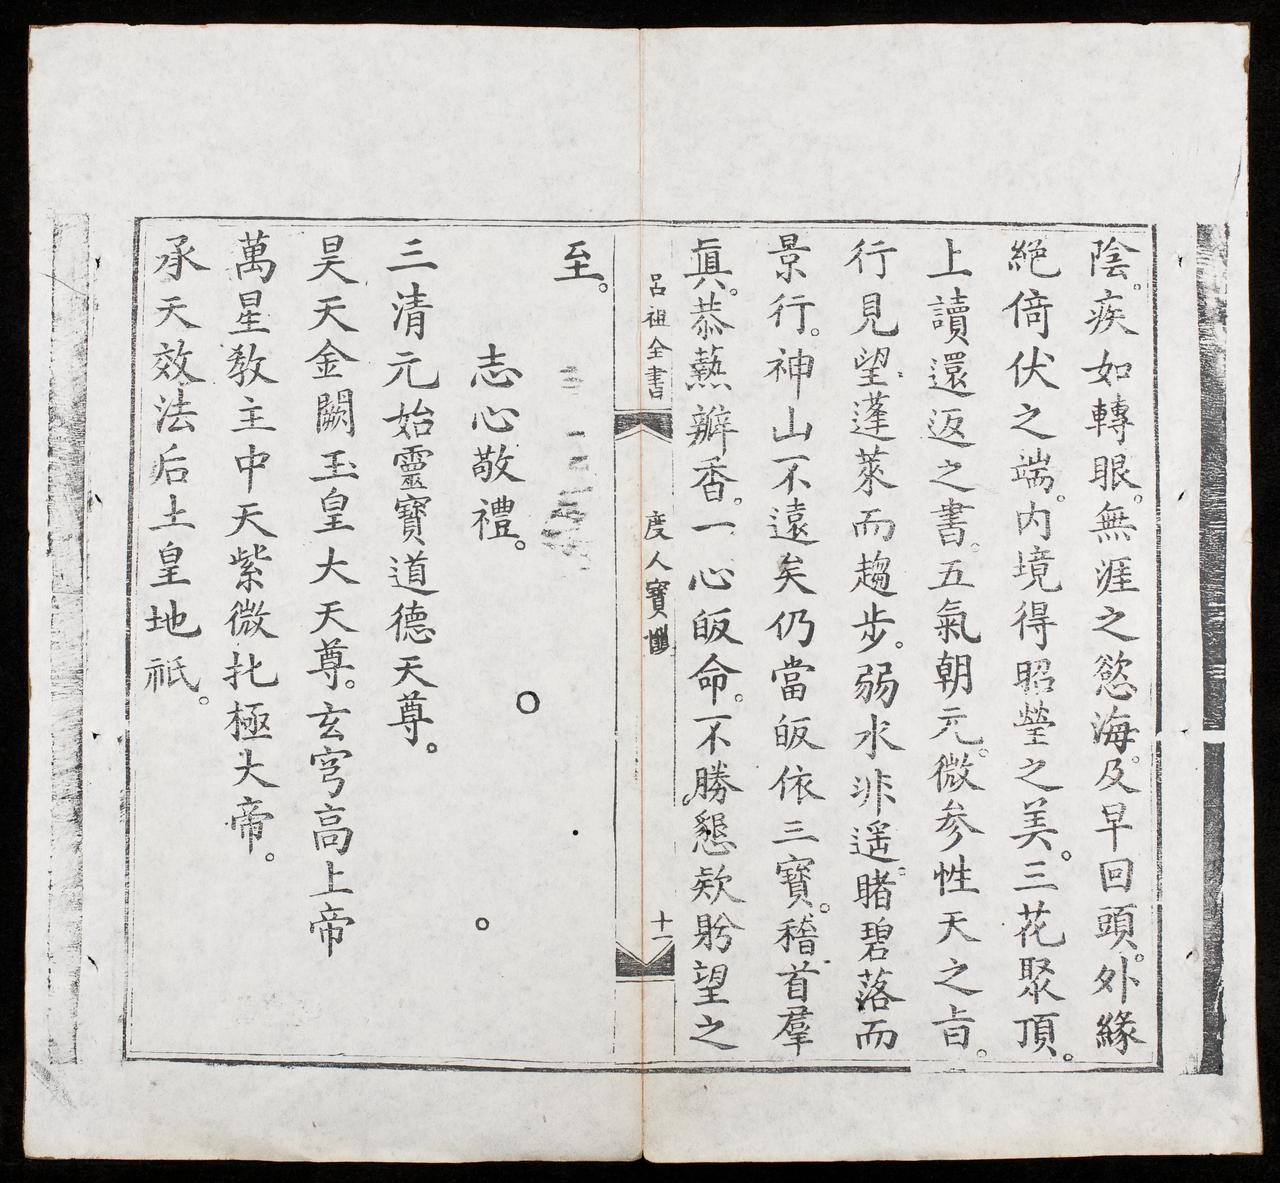 陰。疾如轉眼。無涯之慾海。及早回頭。外緣
絕倚伏之端。内境得昭瑩之美。三花聚頂。
上讀還返之書。五氣朝元。微参性天之㫖。
行見望蓬萊而趨步。弱水非遥。睹碧落而
景行。神山不遠矣仍當皈依三寶。稽首羣
眞。恭爇瓣香。一心皈命。不勝懇欵盻望之
呂祖全書
度人寶懺
十一
至。
志心敬禮。
三清元始靈寶道德天尊。
昊天金闕玉皇大天尊。玄穹高上帝
萬星教主中天紫微北極大帝。
承天效法后土皇地祇。